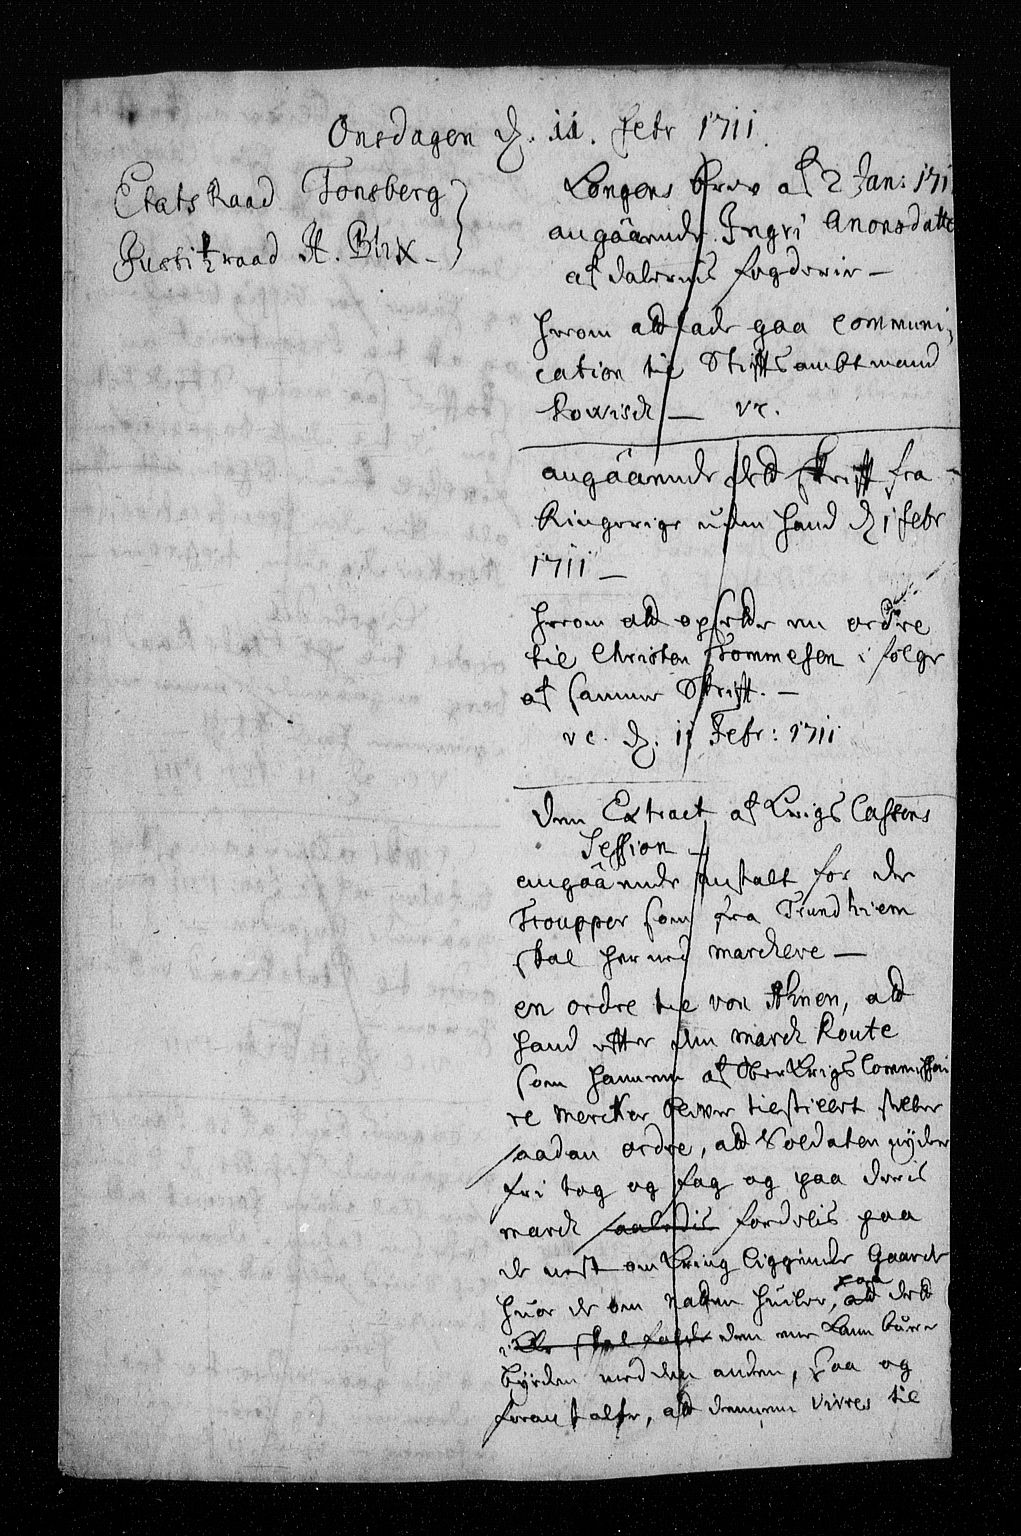 Onsdagen d. 11. Febr 1711.
Etats Raad Tonsberg
Justitzraad H. Blix
Kongens brev af 2 Jan: 171
angaaende Ingri Anonsdatte
af dalernis fogderie —
herom att lade gaa communi
cation til Stiftsambtmand
Powisch — vc.
angaaende dett skrift fra
Ringerige uden Hand d. 1 febr
1711 —
herom att opsette en ordre
til Christen Trommesen i følge
af samme Skrift. —
vc. d. 11 Febr: 1711
Dem Extract af Krigs Cassens
Session —
angaaende anstalt for de
Troupper som fra Trundhiem
skal her ned marchere —
en ordre til von Ahnen, att
hand efter den march Route
som hannem af Ober Krigs Commissai
re Mercker bliver tilstillet stiller
saadan ordre, att Soldaten nyder
fri tag og fag og paa deris
march saaledis fordelis paa
de nest omkring liggende Gaarde
huor de om natten huiler, paa att dett
dem ene kand bære
byrden med den anden, saa og
foranstalte, att dennem vivres til